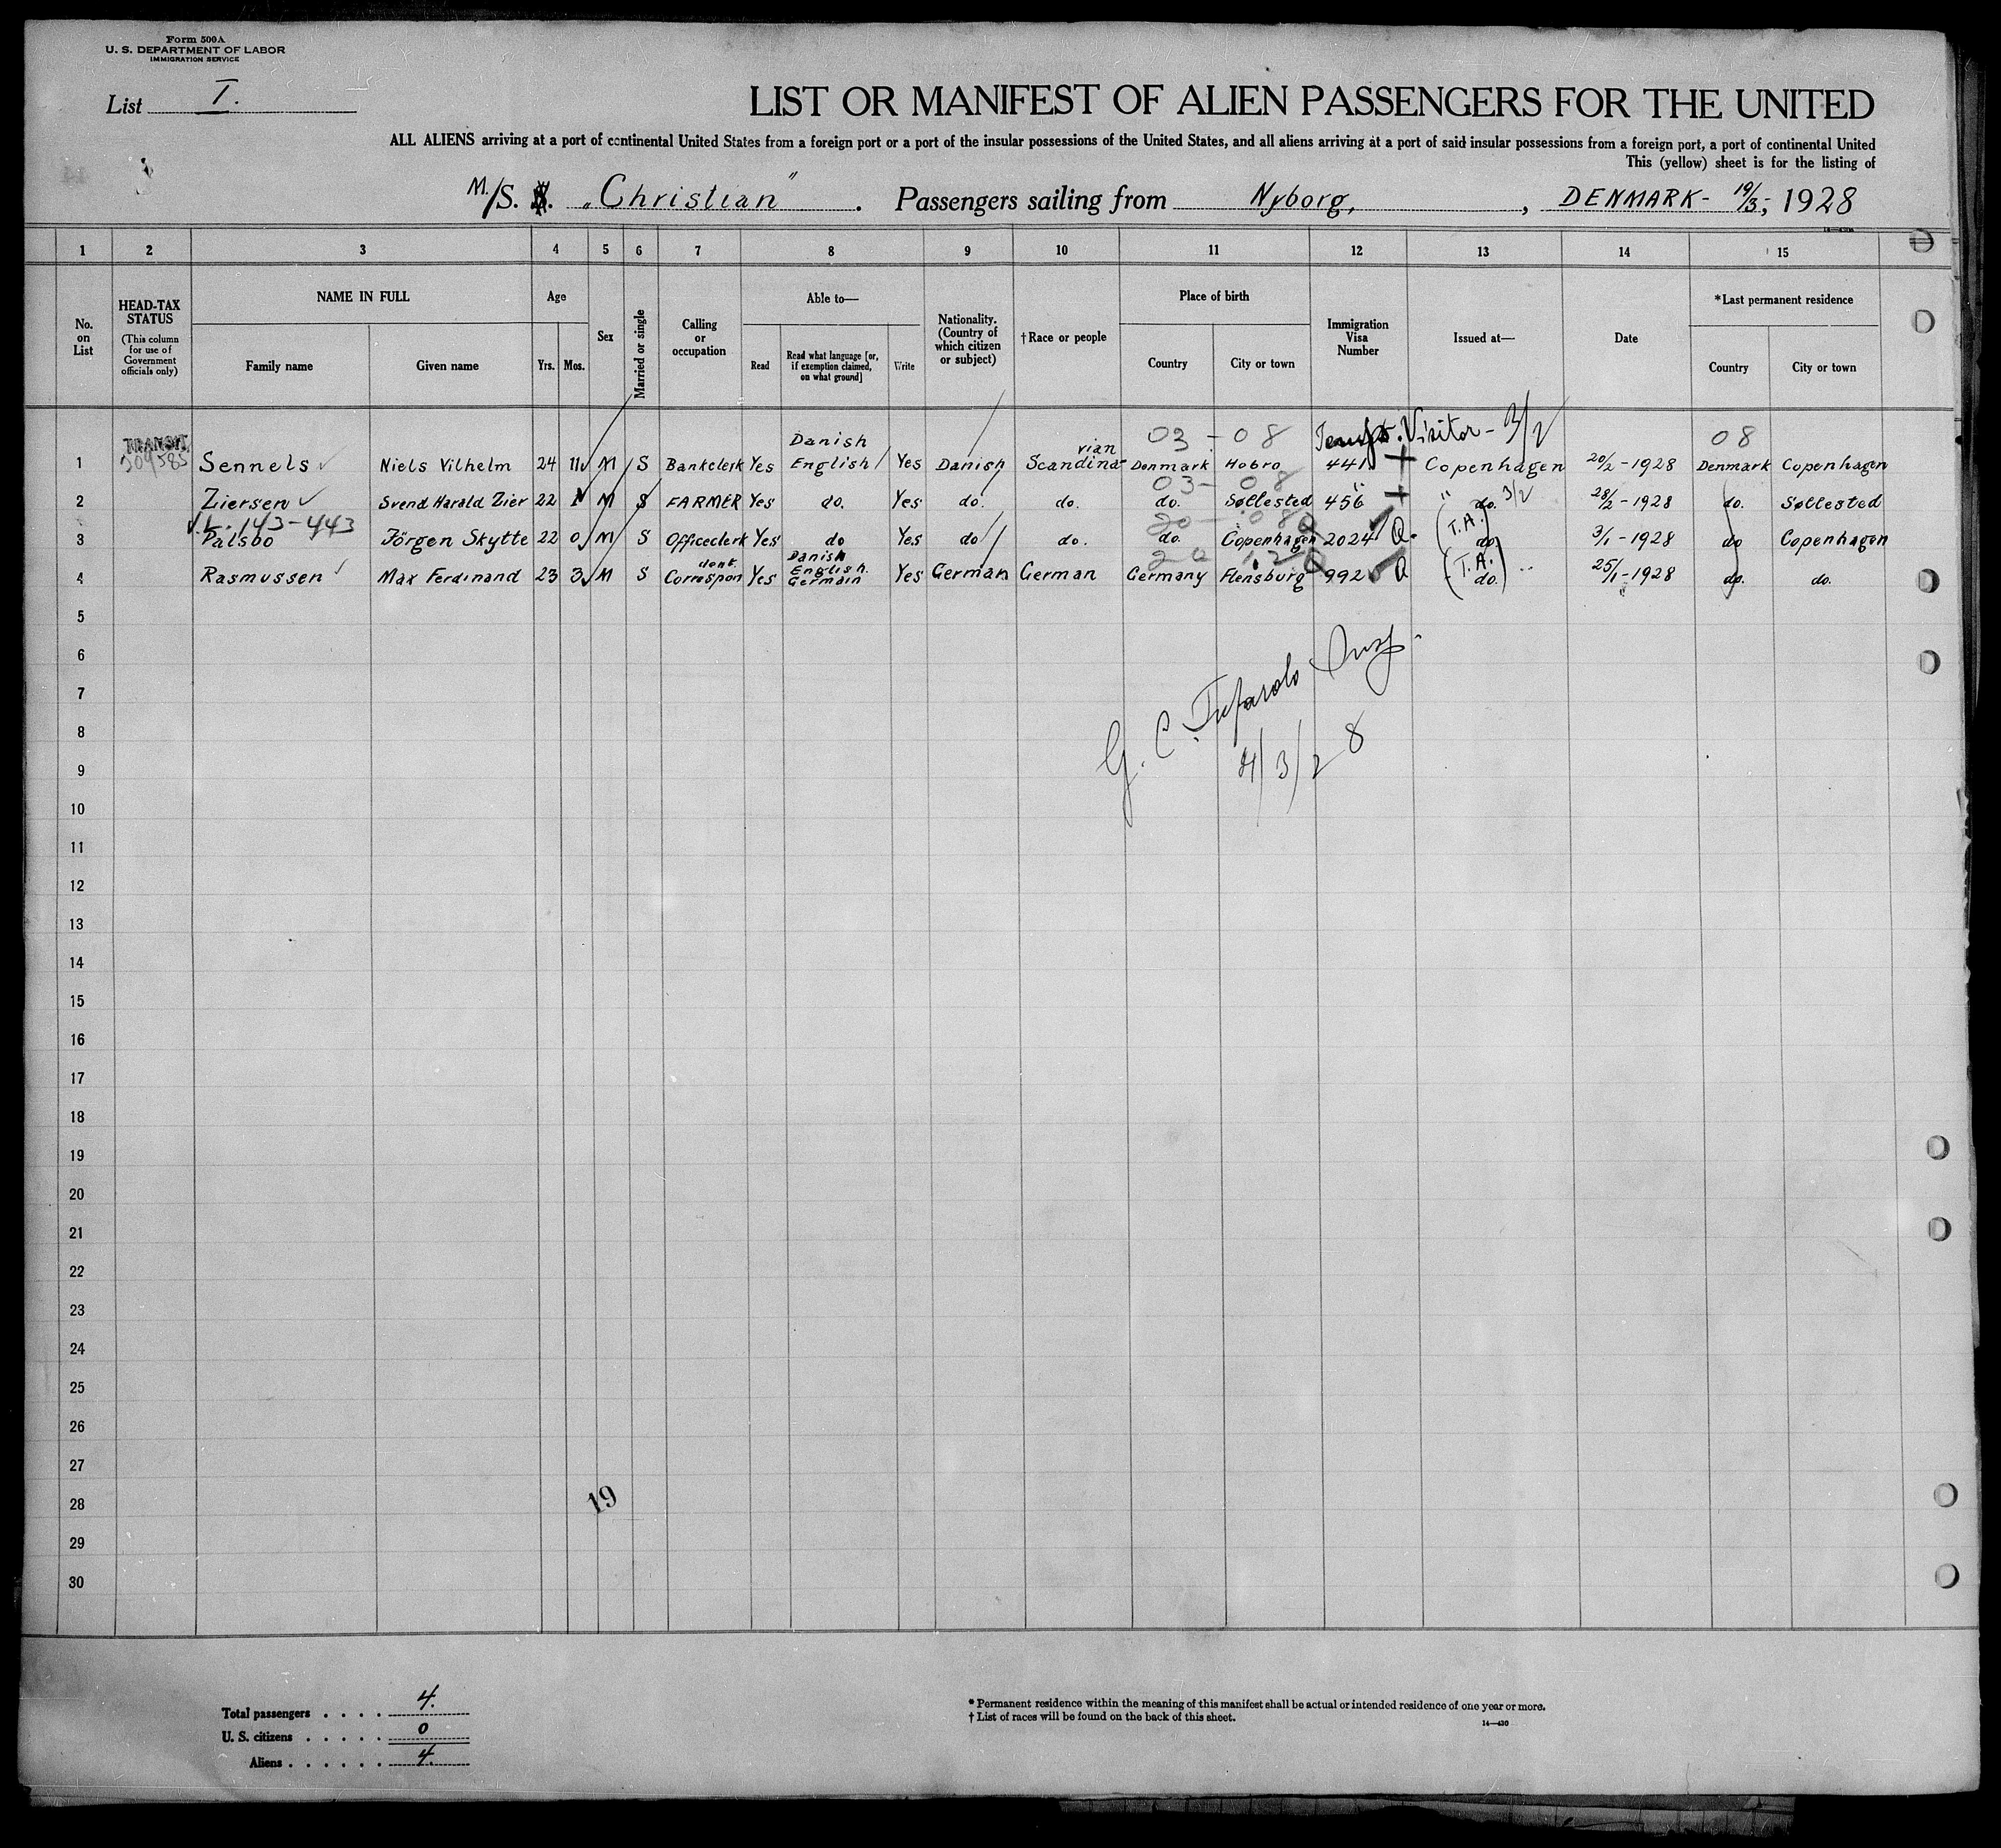 Form 500A
U. S. DEPARTMENT OF LABOR
IMMIGRATION SERVICE
List I.
LIST OR MANIFEST OF ALIEN PASSENGERS FOR THE UNITED
ALL ALIENS arriving at a port of continental United States from a foreign port or a port of the insular possessions of the United States, and all aliens arriving at a port of said insular possessions from a foreign port, a port of continental United
This (yellow) sheet is for the listing of
M/S. „Christian". Passengers sailing from Nyborg, , DENMARK - 19/3-, 1928
1 2 3 4 5 6 7 8 9 10 11 12 13 14 15
No. on List
HEAD-TAX STATUS (This column for use of Government officials only)
NAME IN FULL
Family name Given name
Age
Yrs. Mos.
Sex
Married or single
Calling or occupation
Able to—
Read Read what language [or, if exemption claimed, on what ground] Write
Nationality. (Country of which citizen or subject)
†Race or people
Place of birth
Country City or town
Immigration Visa Number
Issued at—
Date
*Last permanent residence
Country City or town
03 - 08 Visitor - 3/2 08
1 TRANSIT 509585 Sennels Niels Vilhelm 24 11 M S Bankclerk Yes Danish English Yes Danish Scandinavian Denmark Hobro 441 Copenhagen 20/2 - 1928 Denmark Copenhagen
03 - 08
2 Ziersen Svend Harald Zier 22 1 M S FARMER Yes do. Yes do. do. do. Søllested 456 " do. 3/2 28/2 - 1928 do. Søllested
143-443
3 Palsbo Jörgen Skytte 22 0 M S Officeclerk Yes do Yes do do. do. Copenhagen 2024 Q. (T.A.) do. 3/1 - 1928 do Copenhagen
4 Rasmussen Max Ferdinand 23 3 M S Correspondent. Yes Danish English. Germain Yes German German Germany Flensburg 992 Q (T.A.) do. 25/1 - 1928 do. do.
5
6
7
8
9
10
11
12
13
14
15
16
17
18
19
20
21
22
23
24
25
26
27
28
29
30
G. C. Insp.
4/3/28
19
Total passengers . . . . 4.
U. S. citizens . . . . . 0
Aliens . . . . . . 4.
* Permanent residence within the meaning of this manifest shall be actual or intended residence of one year or more.
† List of races will be found on the back of this sheet.
14—430